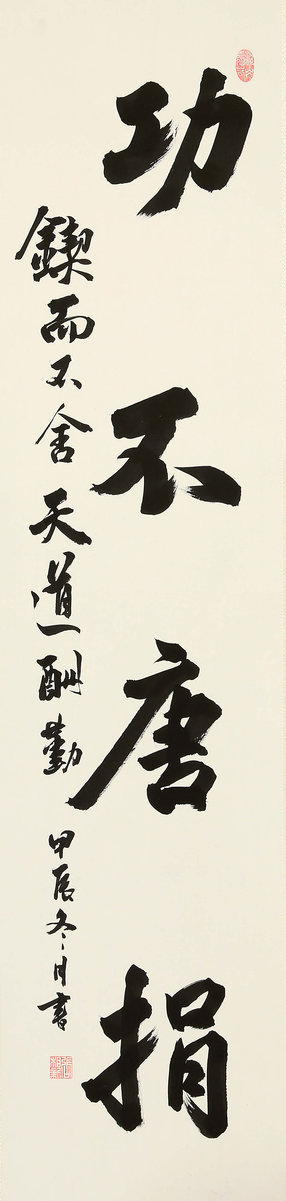 功不唐捐
鍥而不舍天道酬勤甲辰冬月書